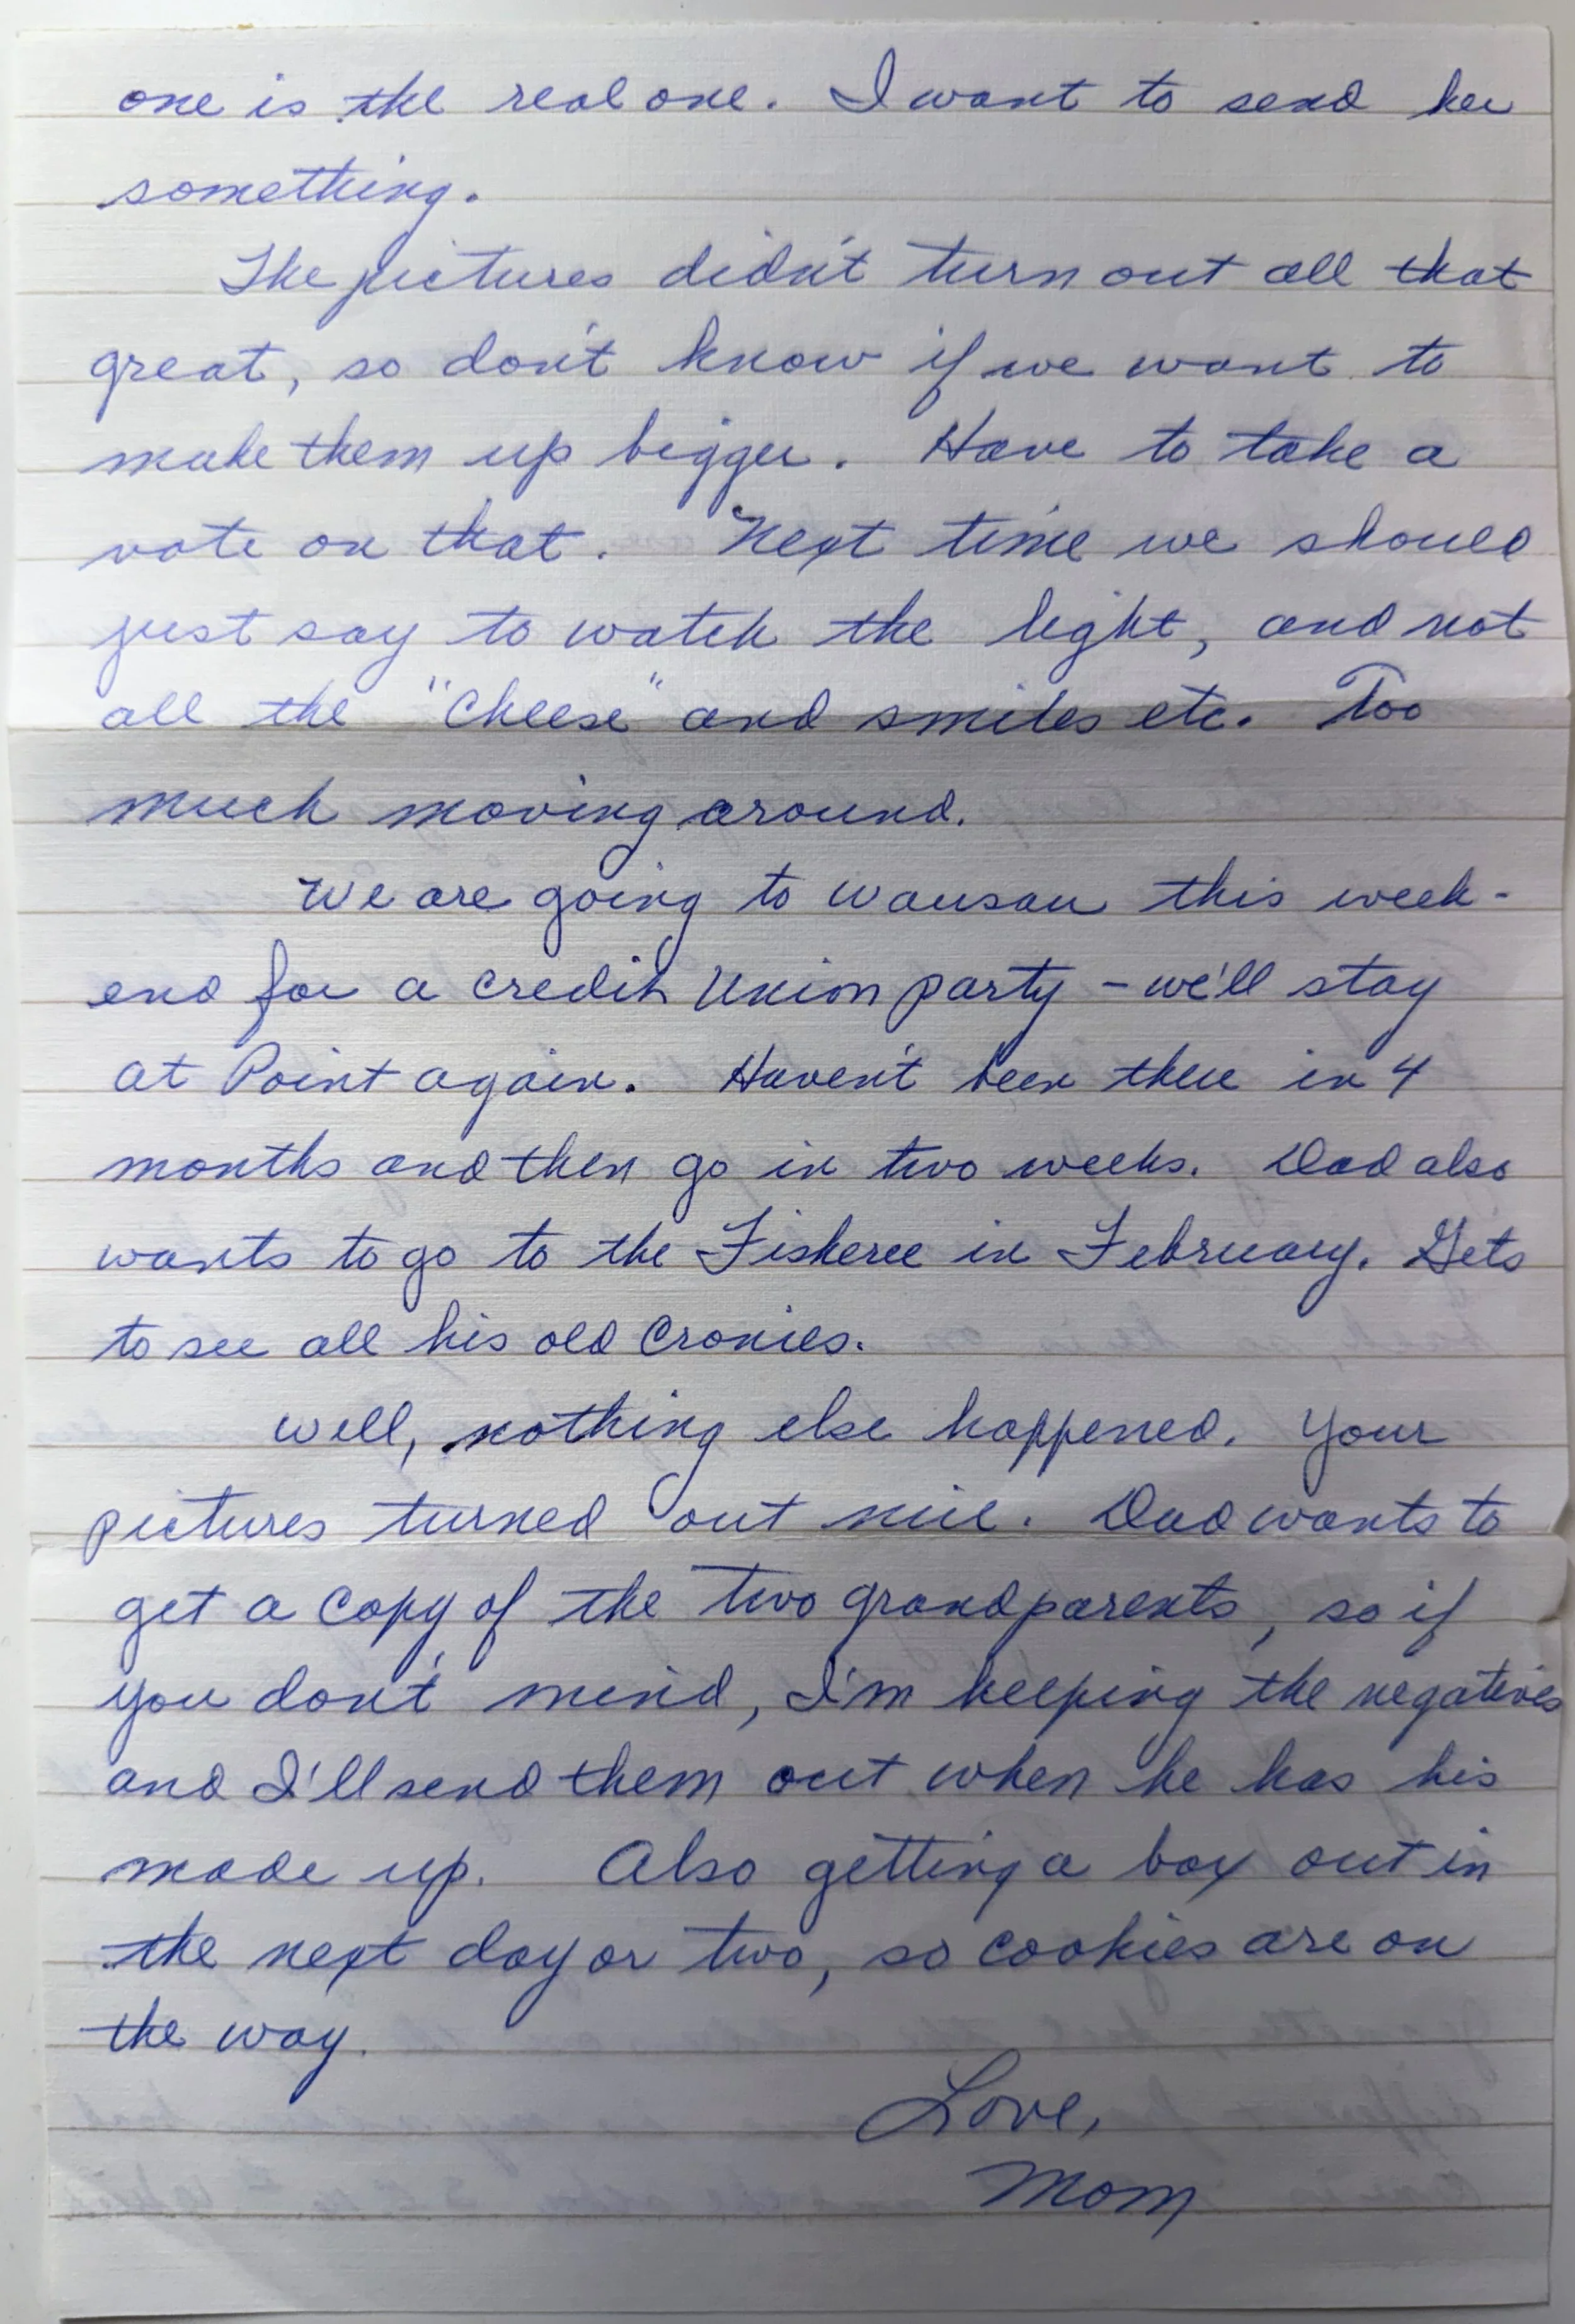 one is the real one. I want to send her
something.
The pictures didn't turn out all that
great, so don't know if we want to
make them up bigger. Have to take a
vote on that. Next time we should
just say to watch the light, and not
all the "Cheese" and smiles etc. Too
much moving around.
We are going to Wausau this week-
end for a Credit Union party - we'll stay
at Point again. Haven't been there in 4
months and then go in two weeks. Dad also
wants to go to the Fisheree in February. Gets
to see all his old cronies.
Well, nothing else happened. Your
pictures turned out nice. Dad wants to
get a copy of the two grandparents, so if
you don't mind, I'm keeping the negatives
and I'll send them out when he has his
made up. Also getting a box out in
the next day or two, so cookies are on
the way.
Love,
Mom